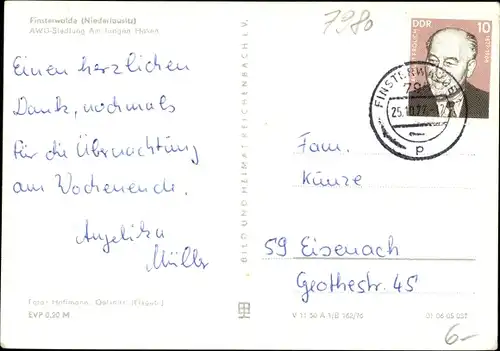 Finsterwalde (Niederlausitz)
AWG-Siedlung Am langen Hacken
7980
DDR
10
FINSTERWALDE
25.10.77
p
Einen herzlichen
Dank, nochmals
für die Übernachtung
am Wochenende.
Angelika
Müller
BILD UND HEIMAT REICHENBACH I. V.
Fam.
Kunze
59 Eisenach
Goethestr. 45
EVP 0,20 M
V 11 50 A 1/B 162/76
01 06 05 051
6.-